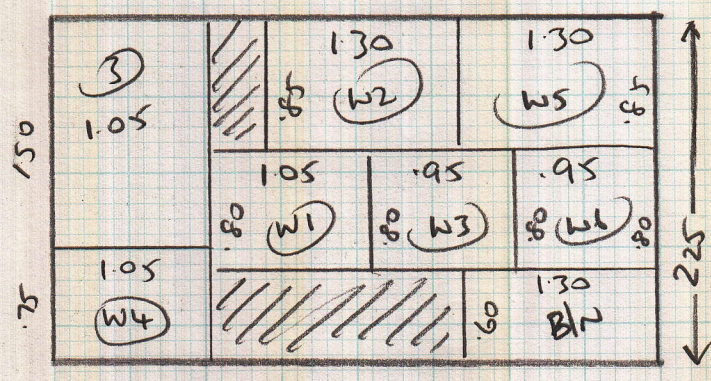 1.50
.75
3
1.05
1.05
W4
1.30
.85
W2
1.30
W5
.85
1.05
.80
W1
.95
.80
W3
.95
.80
W6
.80
1.30
.60
B/N
225